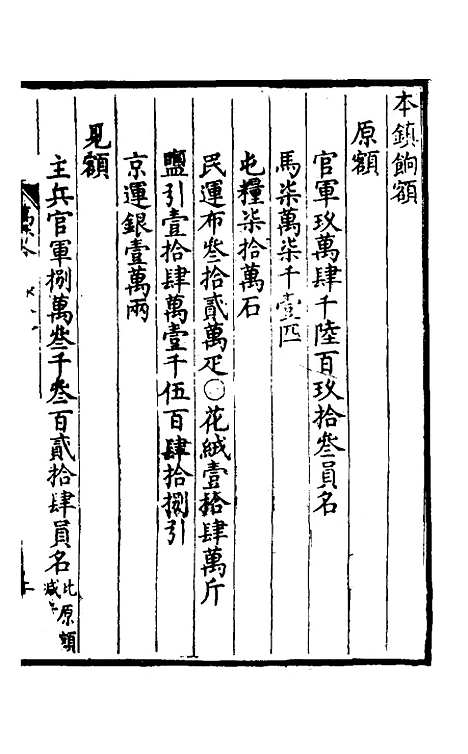 本鎮餉額
原額
官軍玖萬肆千陸百玖拾叁員名
馬柒萬柒千壹匹
屯糧柒拾萬石
民運布叁拾貳萬疋○花絨壹拾肆萬斤
鹽引壹拾肆萬壹千伍百肆拾捌引
京運銀壹萬兩
見額
主兵官軍捌萬叁千叁百貳拾肆員名比原額減